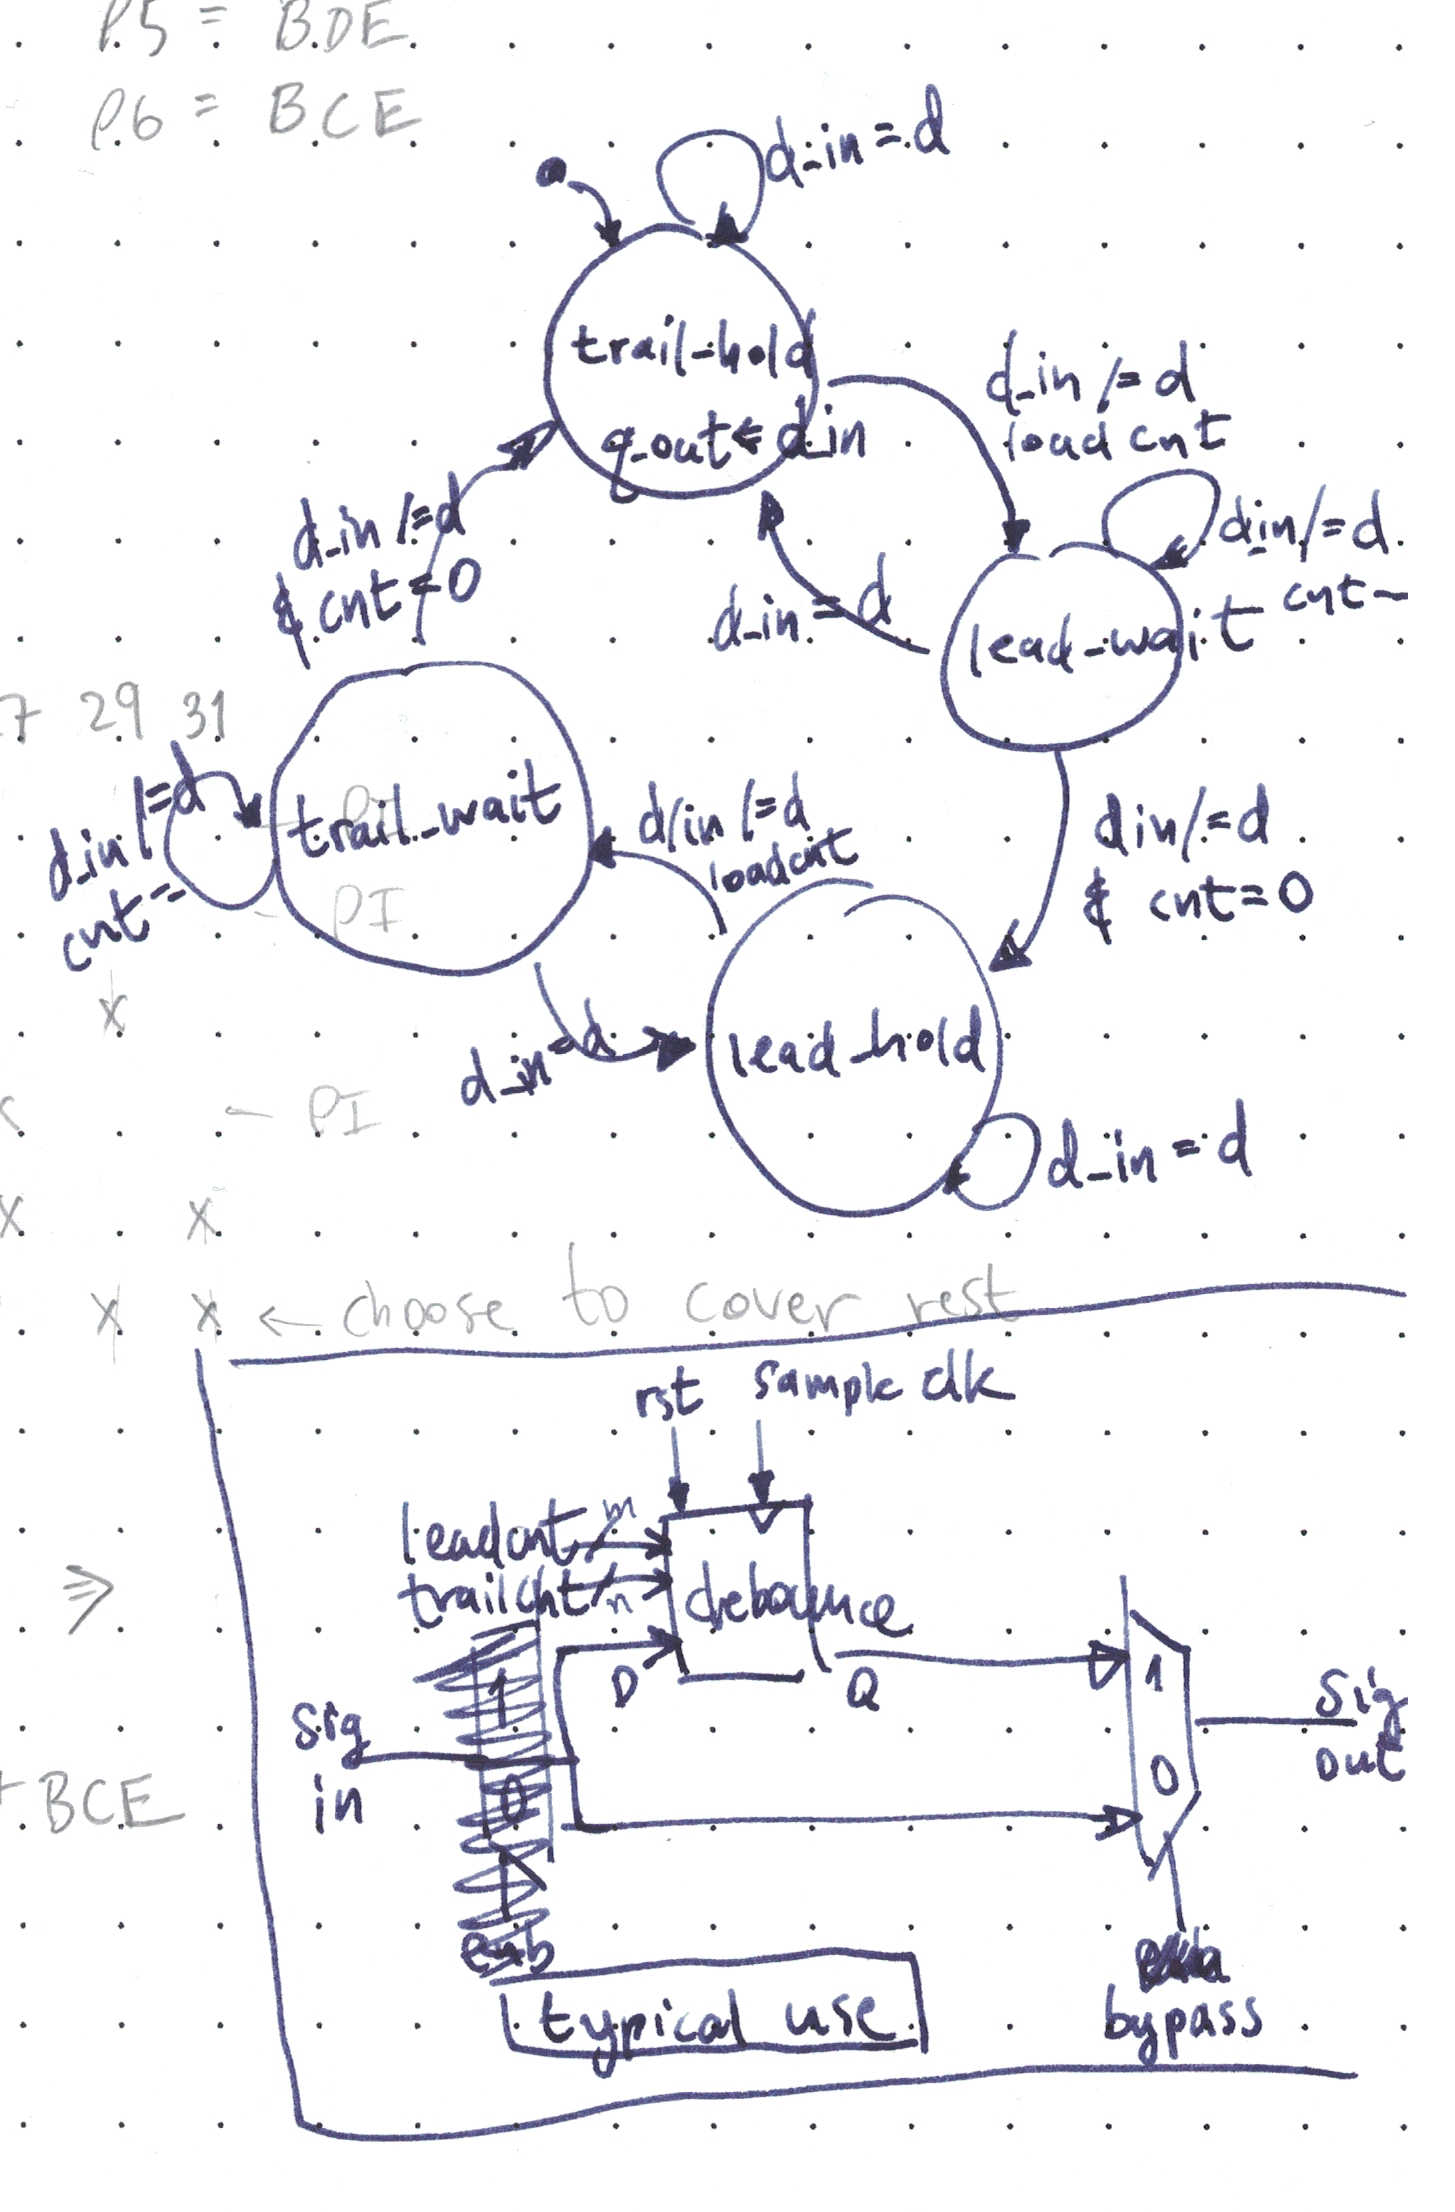 P5 = BDE
P6 = BCE
d_in = d
trail_hold
q_out <= d_in
d_in /= d
load cnt
d_in /= d
cnt--
d_in /= d
& cnt=0
d_in = d
lead_wait
27 29 31
d_in /= d
cnt--
trail_wait
PI
d/in /= d
loadcnt
din/=d
& cnt=0
PI
X
lead_hold
d_in = d
← PI
d_in = d
X X
X X ← choose to cover rest
rst sample clk
leadcnt m
trailcnt n
debounce
1
D Q 1
sig
in
sig
out
0 0
+ BCE
enb
typical use
bypass